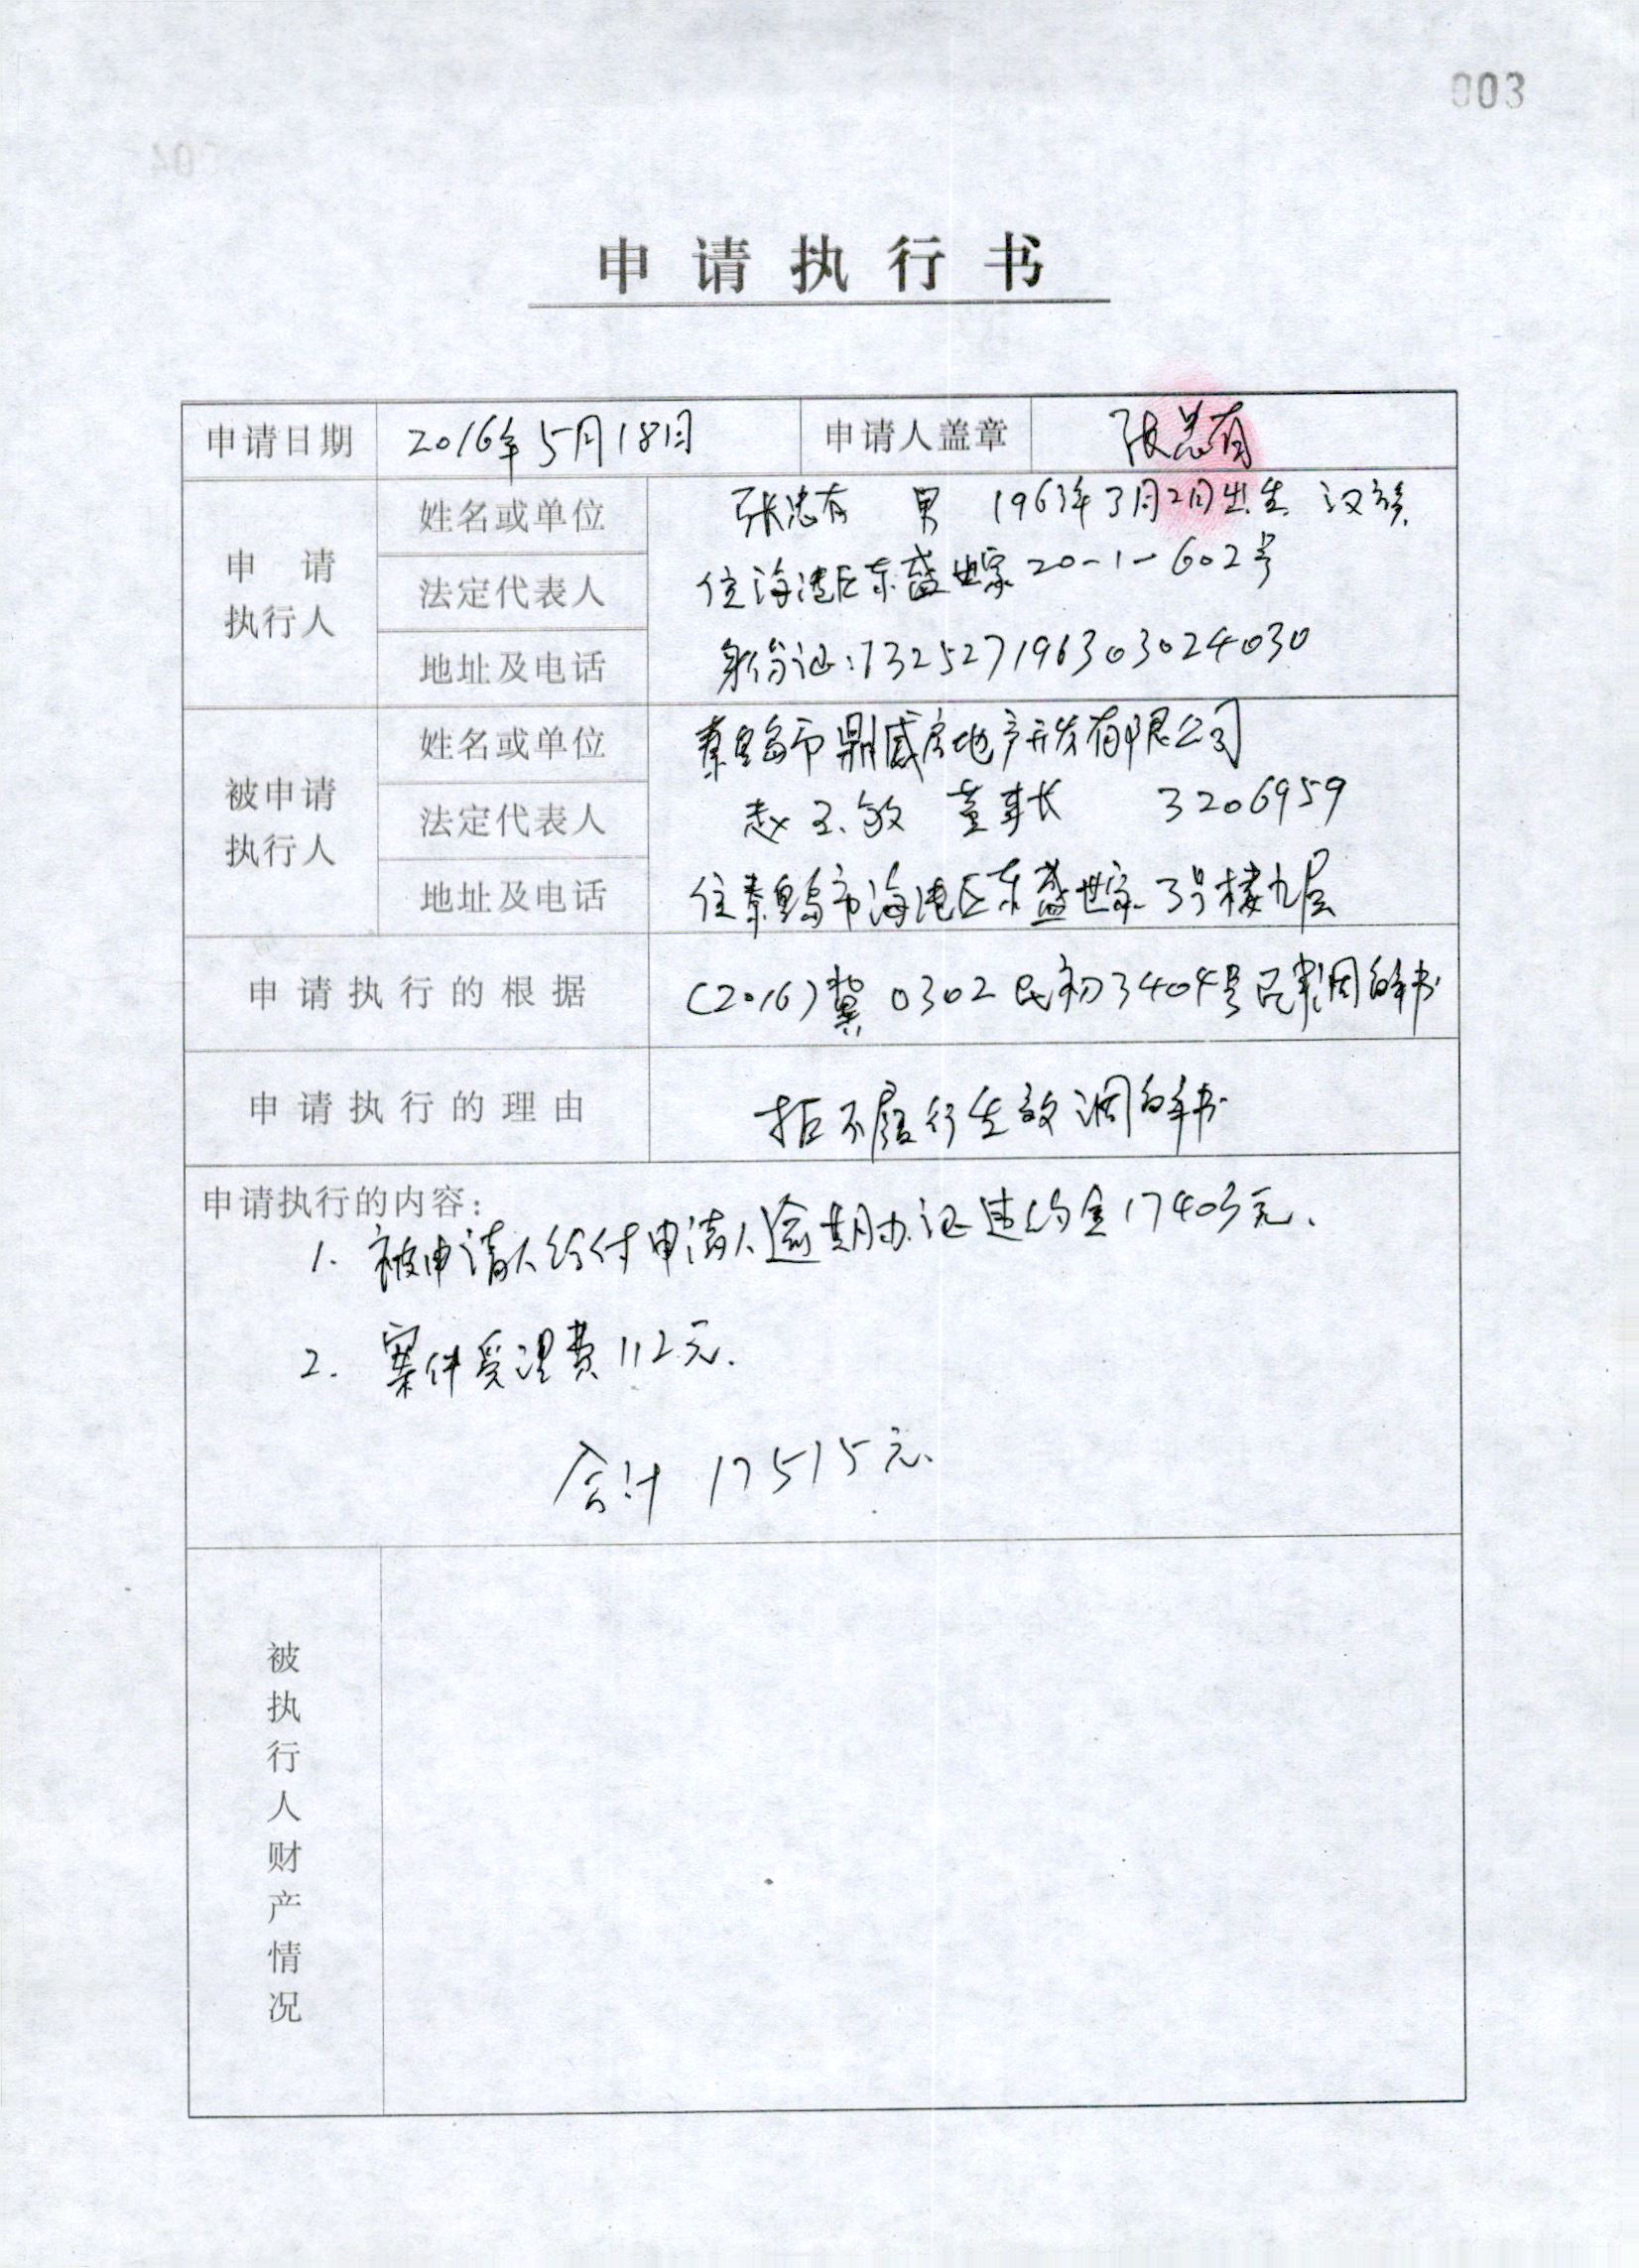 003
申请执行书
申请日期 2016年5月18日 申请人盖章 张忠有
申请执行人
姓名或单位 张忠有 男 1963年3月2日出生 汉族
法定代表人 住海港区东盛世家20-1-602号
地址及电话 身份证:132527196303024030
被申请执行人
姓名或单位 秦皇岛市鼎盛房地产开发有限公司
法定代表人 赵玉敏 董事长 3206959
地址及电话 住秦皇岛市海港区东盛世家3号楼九层
申请执行的根据 (2016)冀0302民初3404号民事调解书
申请执行的理由 拒不履行生效调解书
申请执行的内容:
1. 被申请人给付申请人逾期办证违约金17403元.
2. 案件受理费112元.
合计 17515元.
被执行人财产情况